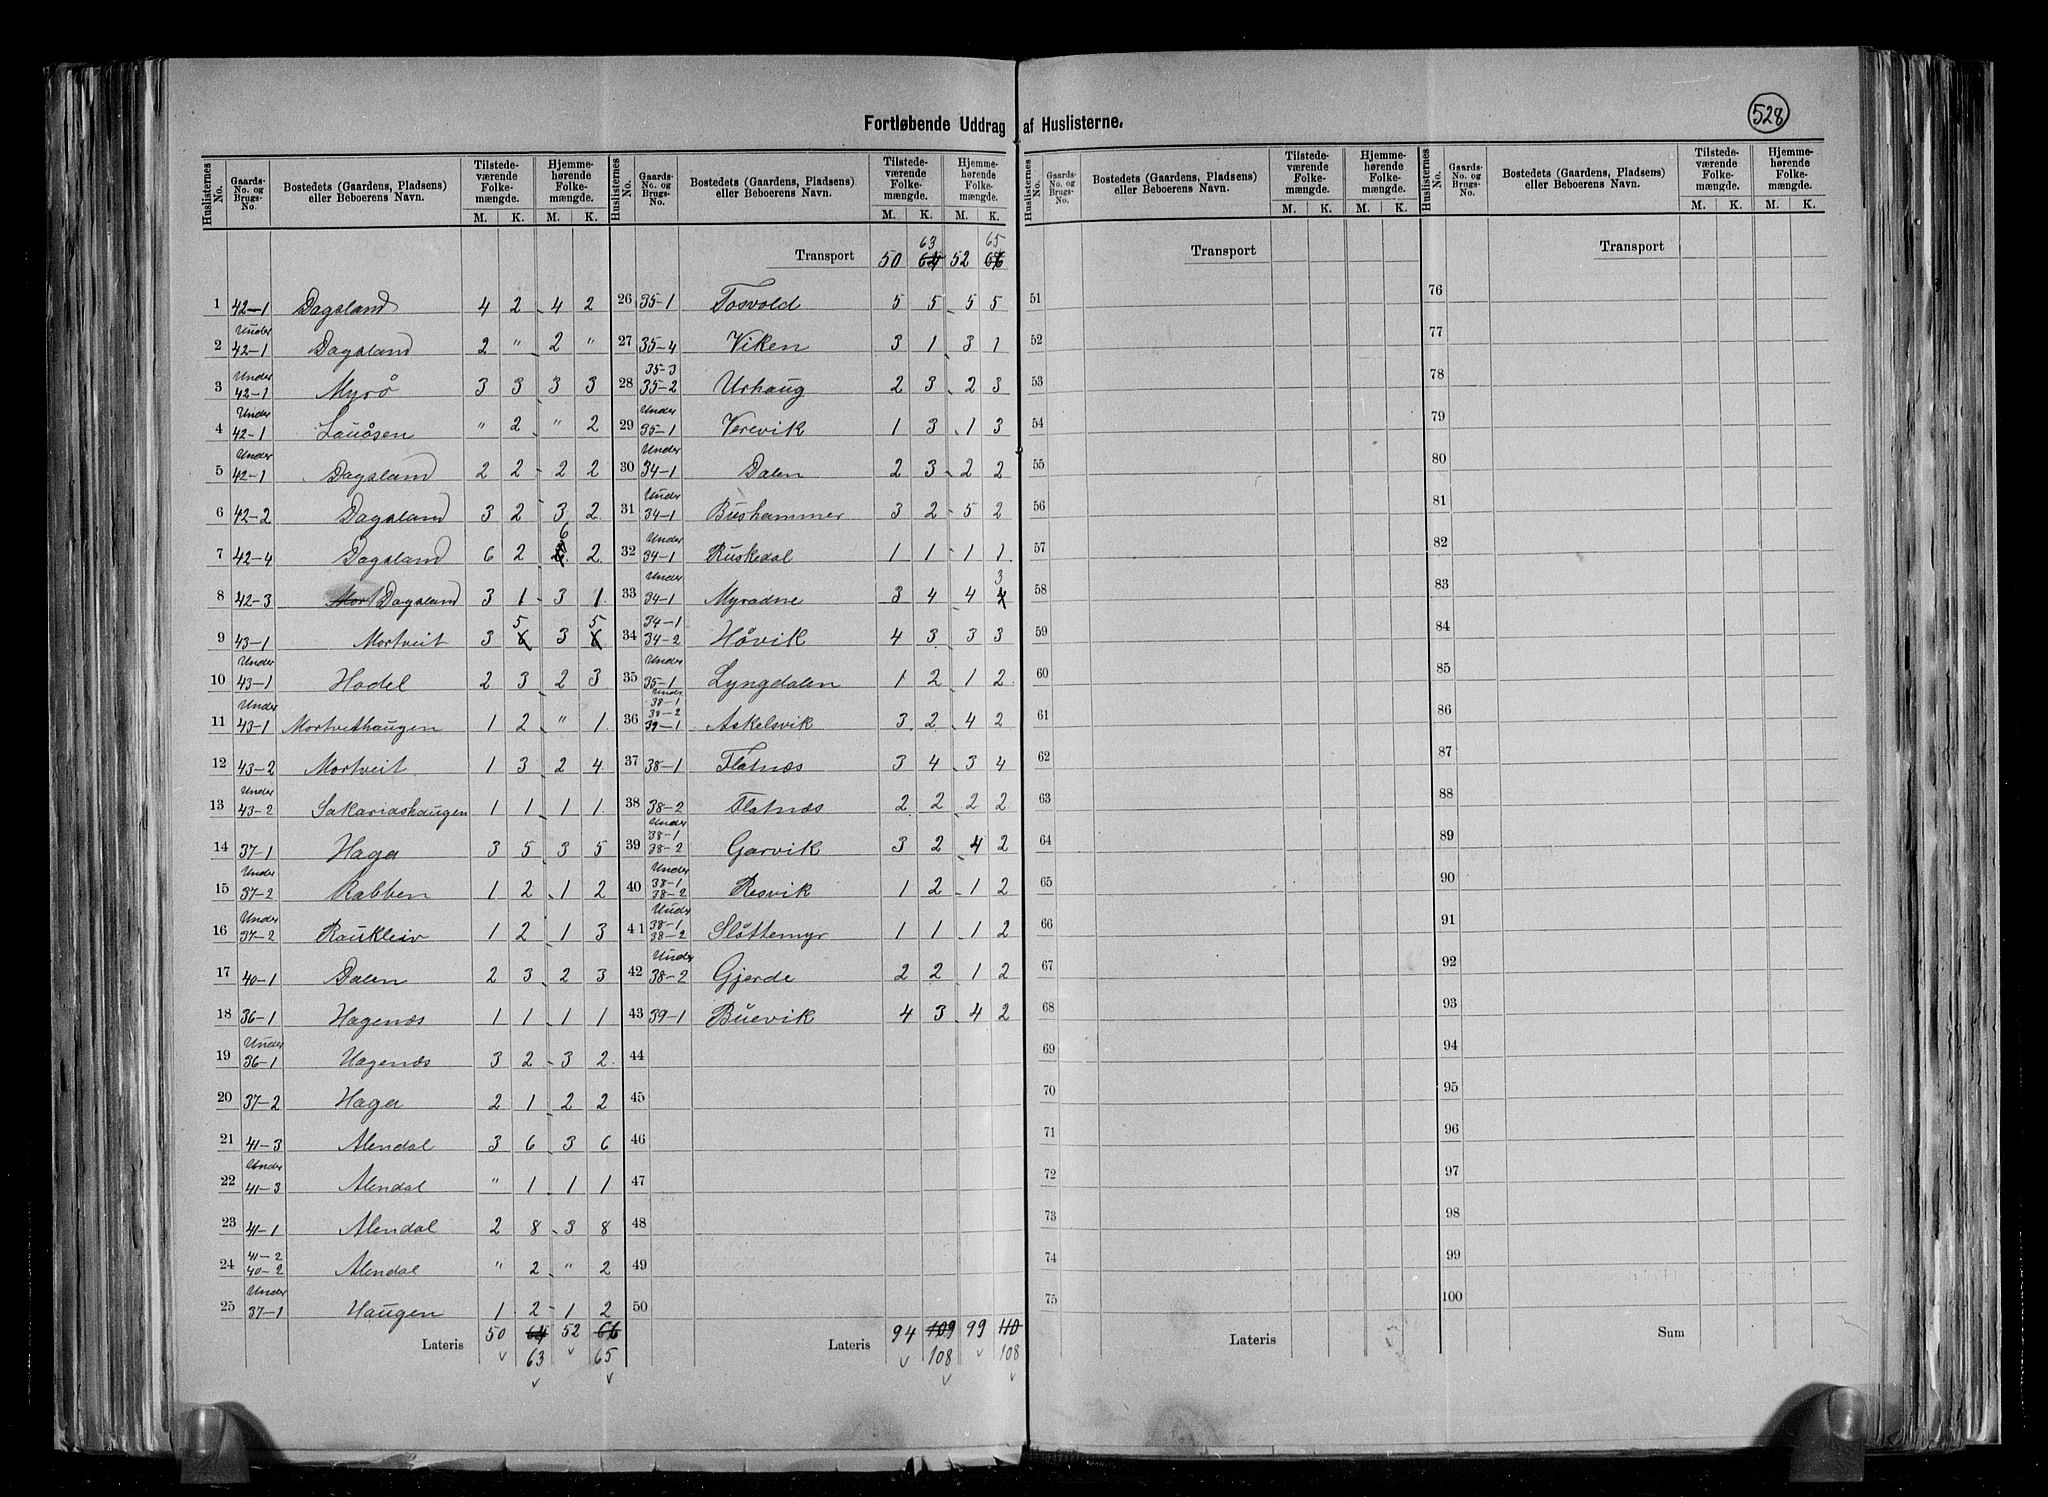 528
Fortløbende Uddrag af Huslisterne.
Huslisternes No. Gaards-No. og Brugs-No. Bostedets (Gaardens, Pladsens) eller Beboerens Navn. Tilstedeværende Folkemængde. M. K. Hjemmehørende Folkemængde. M. K.
1 42-1 Dagsland 4 2 4 2
2 Under 42-1 Dagsland 2 " 2 "
3 Under 42-1 Myrö 3 3 3 3
4 Under 42-1 Lauåsen " 2 " 2
5 Under 42-1 Dagsland 2 2 2 2
6 42-2 Dagsland 3 2 3 2
7 42-4 Dagsland 6 2 6 2
8 42-3 Mor Dagsland 3 1 3 1
9 43-1 Mortveit 3 5 3 5
10 Under 43-1 Hodel 2 3 2 3
11 Under 43-1 Mortvethaugen 1 2 " 1
12 43-2 Mortveit 1 3 2 4
13 Under 43-2 Sakariashaugen 1 1 1 1
14 37-1 Haga 3 5 3 5
15 Under 37-2 Rabben 1 2 1 2
16 Under 37-2 Raukleiv 1 2 1 3
17 40-1 Dalen 2 3 2 3
18 36-1 Hagenæs 1 1 1 1
19 Under 36-1 Hagenæs 3 2 3 2
20 37-2 Haga 2 1 2 2
21 41-3 Alendal 3 6 3 6
22 Under 41-3 Alendal " 1 1 1
23 41-1 Alendal 2 8 3 8
24 41-2 40-2 Alendal " 2 " 2
25 Under 37-1 Haugen 1 2 1 2
Lateris 50 64 52 66
63 65
Huslisternes No. Gaards-No. og Brugs-No. Bostedets (Gaardens, Pladsens) eller Beboerens Navn. Tilstedeværende Folkemængde. M. K. Hjemmehørende Folkemængde. M. K.
63 65
Transport 50 64 52 66
26 35-1 Tosvold 5 5 5 5
27 35-4 Viken 3 1 3 1
28 35-3 35-2 Urhaug 2 3 2 3
29 Under 35-1 Verevik 1 3 1 3
30 Under 34-1 Dalen 2 3 2 2
31 Under 34-1 Bushammer 3 2 5 2
32 Under 34-1 Ruskedal 1 1 1 1
33 Under 34-1 Myradne 3 4 4 3
34 34-1 34-2 Håvik 4 3 3 3
35 Under 35-1 Lyngdalen 1 2 1 2
36 Under 38-1 38-2 39-1 Askelsvik 3 2 4 2
37 38-1 Flatnæs 3 4 3 4
38 38-2 Flatnæs 2 2 2 2
39 Under 38-1 38-2 Garvik 3 2 4 2
40 Under 38-1 38-2 Resvik 1 2 1 2
41 Under 38-1 38-2 Slåttemyr 1 1 1 2
42 Under 38-2 Gjerde 2 2 1 2
43 39-1 Buevik 4 3 4 2
44
45
46
47
48
49
50
Lateris 94 109 99 110
108 108
Huslisternes No. Gaards-No. og Brugs-No. Bostedets (Gaardens, Pladsens) eller Beboerens Navn. Tilstedeværende Folkemængde. M. K. Hjemmehørende Folkemængde. M. K.
Transport
51
52
53
54
55
56
57
58
59
60
61
62
63
64
65
66
67
68
69
70
71
72
73
74
75
Lateris
Huslisternes No. Gaards-No. og Brugs-No. Bostedets (Gaardens, Pladsens) eller Beboerens Navn. Tilstedeværende Folkemængde. M. K. Hjemmehørende Folkemængde. M. K.
Transport
76
77
78
79
80
81
82
83
84
85
86
87
88
89
90
91
92
93
94
95
96
97
98
99
100
Sum